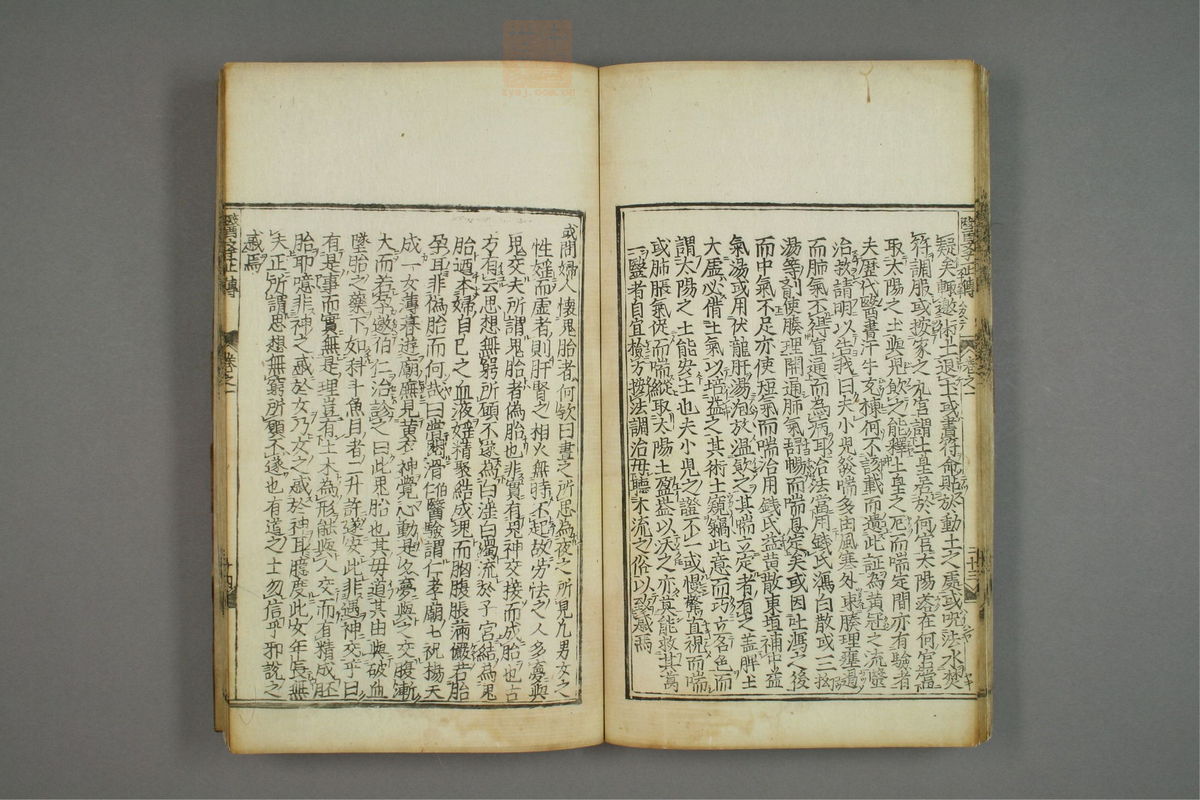 疑矣輒邀術士退土或書符命貼於動土之處或呪法水焚
符調服或按家之九宮謂土皇居於何宮太陽落在何宮當
取太陽之土與兒飲之能釋土皇之厄而喘定間亦有驗者
夫歷代醫書汗牛充棟何不該載而遺此証為黃冠之流醫
治救請明以告我曰夫小兒發喘多由風寒外束腠理壅遏
而肺氣不得宣通而為病耳治法當用錢氏瀉白散或三拗
湯等劑使腠理開通肺氣舒暢而喘息定矣或因吐瀉之後
而中氣不足亦使短氣而喘治用錢氏益黃散東垣補中益
氣湯或用伏龍肝湯泡放溫飲之其喘立定者有之蓋脾土
大虛必借土氣以培益之其術士竊此意而巧立名色而
謂太陽之土能安土也夫小兒之證不一或慢驚直視而喘
或肺脹氣促而喘縱取太陽土盈盎以沃之亦莫能救其萬
一醫者自宜檢方按法調治毋聽末流之俗以致惑焉
醫學正傳
卷之一
二十三
或問婦人懷鬼胎者何歟曰晝之所思為夜之所見凡男女之
性婬而虛者則肝腎之相火無時不起故勞怯之人多夢與
鬼交夫所謂鬼胎者偽胎也非實有鬼神交接而成胎也古
方有云思想無窮所願不遂為白淫白濁流於子宮結為鬼
胎迺本婦自己之血液婬精聚結成塊而胸腹脹滿儼若胎
孕耳非偽胎而何哉曰嘗閱滑伯仁醫驗謂仁孝廟七祝楊天
成一女薄暮遊廟廡見黃衣神覺心動是夕夢與之交腹漸
大而若孕邀伯仁治診之曰此鬼胎也其母道其由與破血
墜胎之藥下如蝌斗魚目者二升許遂安此非遇神交乎曰
有是事而實無是理豈有土木為形能與人交而有精成胚
胎耶噫非神之惑於女乃女之惑於神耳臆度此女年長無
夫正所謂思想無窮所願不遂也有道之士勿信乎邪說之
惑焉
醫學正傳
卷之一
十四